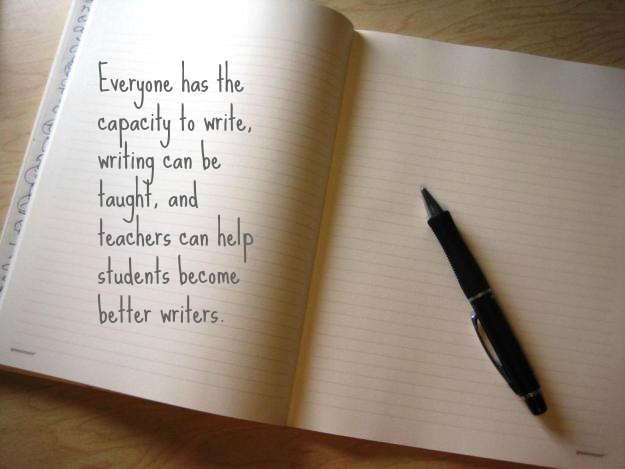 Everyone has the
capacity to write,
writing can be
taught, and
teachers can help
students become
better writers.